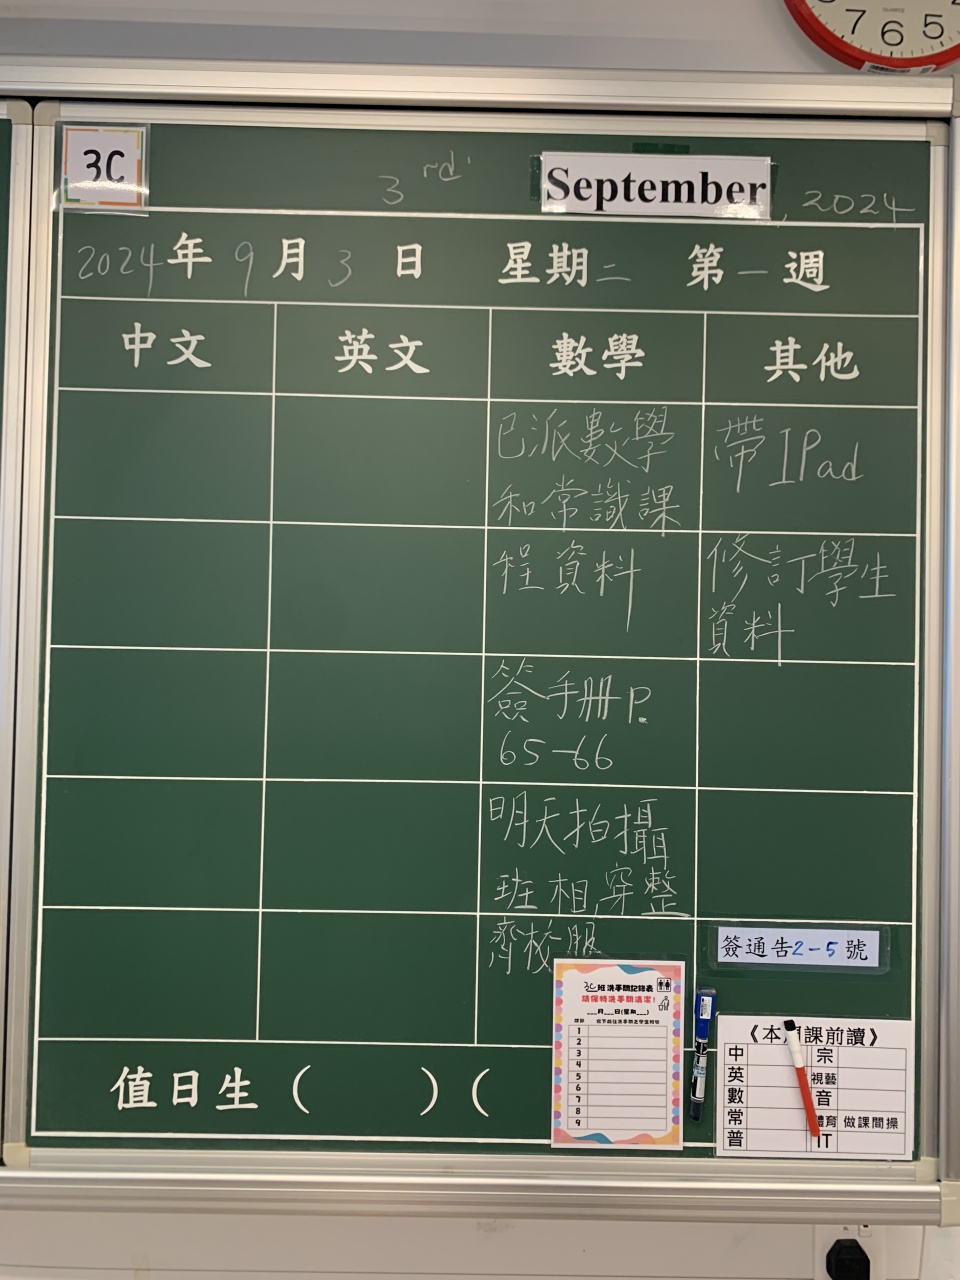 7 6 5
QUARTZ
3C
3rd. September, 2024
2024年9月3日 星期二 第一週
中文 英文 數學 其他
已派數學
和常識課
程資料
簽手冊P.
65-66
明天拍攝
班相,穿整
齊校服
帶IPad
修訂學生
資料
簽通告2-5號
值日生( )(
3C班洗手間記錄表
請保持洗手間清潔!
___月___日(星期___)
1
2
3
4
5
6
7
8
9
《本周課前讀》
中 宗
英 視藝
數 音
常 體育 做課間操
普 IT